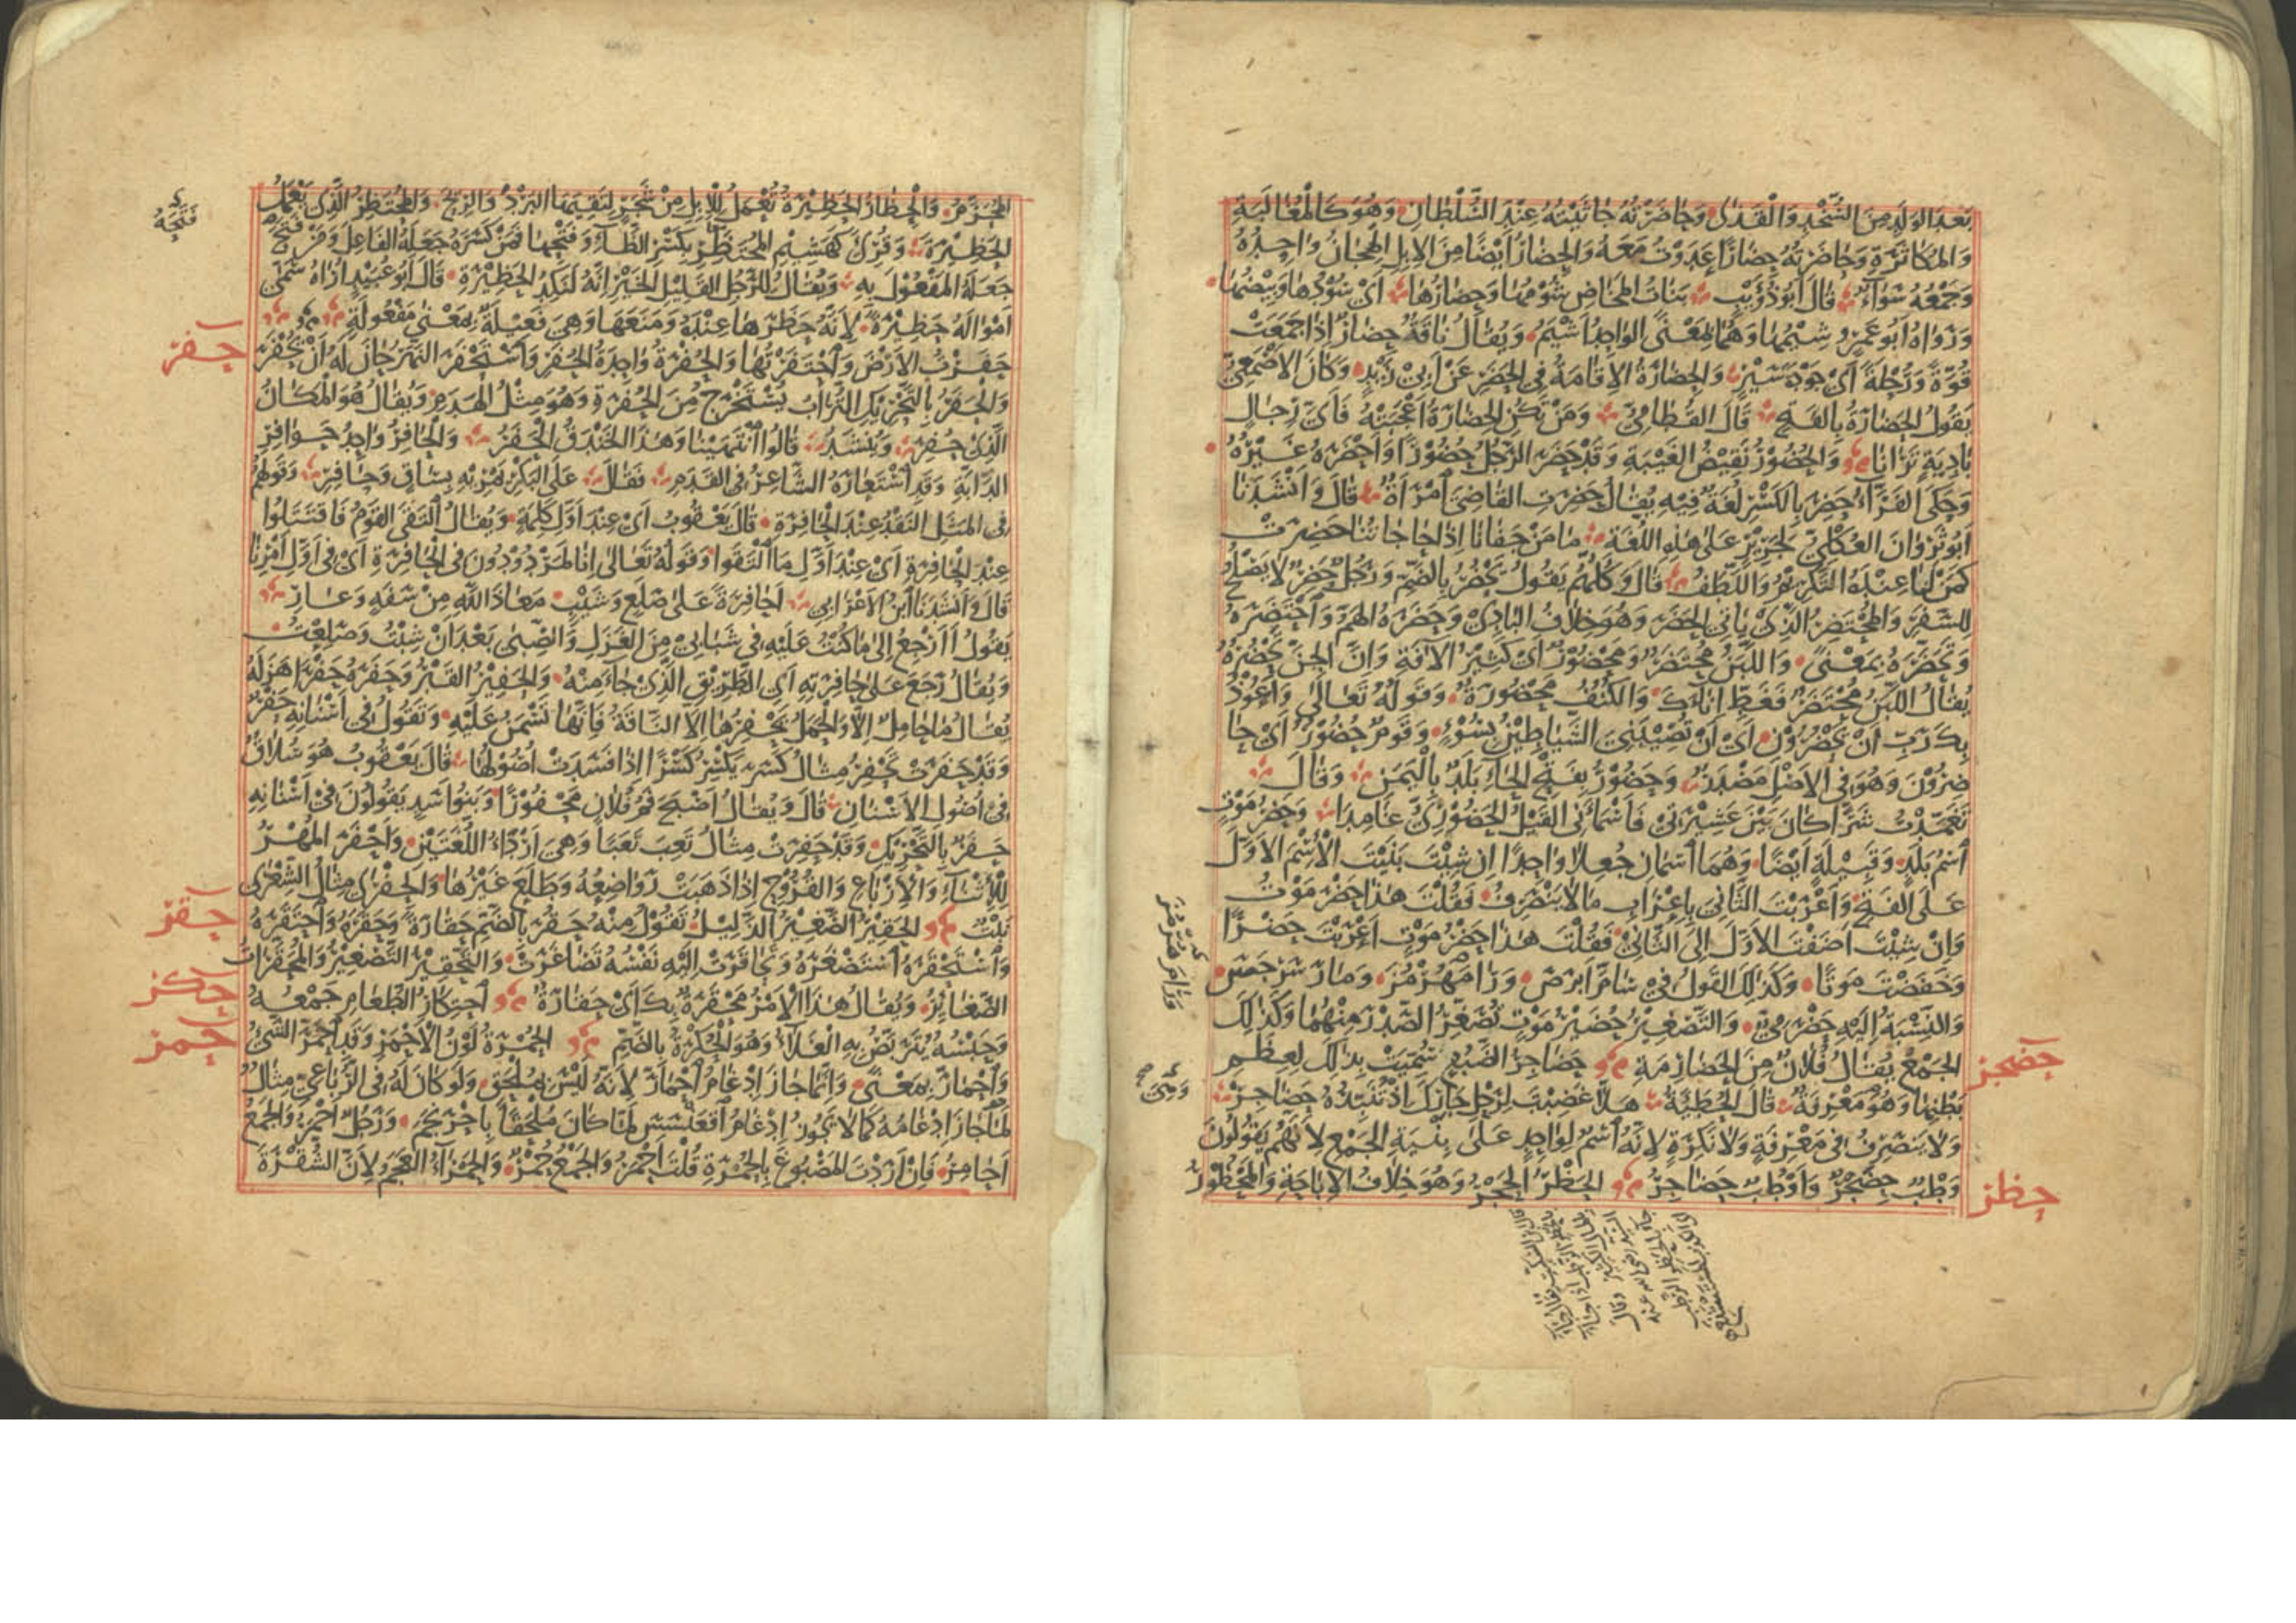 بَعْدَ الوَلَدِ مِنَ السُّخْدِ وَالْقَذَى وَحَاضَرْتُهُ جَاثَيْتُهُ عِنْدَ السُّلْطَانِ وَهُوَ كَالْمُغَالَبَةِ
وَالمُكَاثَرَةِ وَحَاضَرْتُهُ حِضَارًا عَدَوْتُ مَعَهُ وَالْحِضَارُ اَيْضًا مِنَ الاِبِلِ الْهِجَانُ وَاحِدُهُ
وَجَمْعُهُ سَوَاءٌ قَالَ اَبُو ذُؤَيْبٍ بَنَاتُ المَخَاضِ شُوْمُهَا وَحِضَارُهَا اَىْ سُوْدُهَا وَبِيْضُهَا
وَرَوَاهُ اَبُو عَمْرٍو شِيْمُهَا وَهُمَا بِمَعْنًى الوَاحِدُ اَشْيَمُ وَيُقَالُ نَاقَةٌ حِضَارٌ اِذَا جَمَعَتْ
قُوَّةً وَرُحْلَةً اَىْ جَوْدَةَ سَيْرٍ وَالحِضَارَةُ الاِقَامَةُ فِى الحَضَرِ عَنْ اَبِىْ زَيْدٍ وَكَانَ الاَصْمَعِىُّ
يَقُولُ الحَضَارَةُ بِالفَتْحِ قَالَ القُطَامِىُّ وَمَنْ تَكُنِ الحِضَارَةُ اَعْجَبَتْهُ فَاَىَّ رِجَالِ
بَادِيَةٍ تَرَانَا وَالحُضُوْرُ نَقِيْضُ الغَيْبَةِ وَقَدْ حَضَرَ الرَّجُلُ حُضُوْرًا وَاَحْضَرَهُ غَيْرُهُ
وَحَكَى الفَرَّاءُ حَضِرَ بِالكَسْرِ لُغَةٌ فِيْهِ يُقَالُ حَضِرَتِ القَاضِىَ امْرَاَةٌ قَالَ وَاَنْشَدَنَا
اَبُو ثَرْوَانَ العُكْلِىُّ لِجَرِيْرٍ عَلَى هٰذِهِ اللُّغَةِ مَا مَنْ جَفَانَا اِذَا حَاجَاتُنَا حَضِرَتْ
كَمَنْ لَنَا عِنْدَهُ التَّكْرِيْمُ وَاللَّطَفُ قَالَ وَكُلُّهُمْ يَقُولُ تَحْضُرُ بِالضَّمِّ وَرَجُلٌ حَضِرٌ لَا يَصْلُحُ
لِلسَّفَرِ وَالمُحْتَضِرُ الَّذِىْ يَاتِى الحَضَرَ وَهُوَ خِلَافُ البَادِىْ وَحَضَرَهُ الهَمُّ وَاحْتَضَرَهُ
وَتَحَضَّرَهُ بِمَعْنًى وَاللَّبَنُ مُحْتَضَرٌ وَمَحْضُوْرٌ اَىْ كَثِيْرُ الآفَةِ وَاِنَّ الجِنَّ تَحْضُرُهُ
يُقَالُ اللَّبَنُ مُحْتَضَرٌ فَغَطِّ اِنَاءَكَ وَالكُنُفُ مَحْضُوْرَةٌ وَقَوْلُهُ تَعَالَى وَاَعُوْذُ
بِكَ رَبِّ اَنْ يَحْضُرُوْنِ اَىْ اَنْ تُصِيْبَنِىَ الشَّيَاطِيْنُ بِسُوْءٍ وَقَوْمٌ حُضُوْرٌ اَىْ حَا
ضِرُوْنَ وَهُوَ فِى الاَصْلِ مَصْدَرٌ وَحَضُوْرٌ بِفَتْحِ الحَاءِ بَلَدٌ بِالْيَمَنِ وَقَالَ
تَغَمَّدْتُ شَرًّا كَانَ بَيْنَ عَشِيْرَتِىْ فَاَسْمَانِىَ القَيْلُ الحَضُوْرِىُّ غَامِدَا وَحَضْرَمَوْتُ
اسْمُ بَلَدٍ وَقَبِيْلَةٍ اَيْضًا وَهُمَا اسْمَانِ جُعِلَا وَاحِدًا اِنْ شِئْتَ بَنَيْتَ الاِسْمَ الاَوَّلَ
عَلَى الفَتْحِ وَاَعْرَبْتَ الثَّانِىَ بِاِعْرَابِ مَا لَا يَنْصَرِفُ فَقُلْتَ هٰذَا حَضْرَمَوْتُ
وَاِنْ شِئْتَ اَضَفْتَ الاَوَّلَ اِلَى الثَّانِىْ فَقُلْتَ هٰذَا حَضْرُ مَوْتٍ اَعْرَبْتَ حَضْرًا
وَخَفَضْتَ مَوْتًا وَكَذٰلِكَ القَوْلُ فِىْ سَامِّ اَبْرَصَ وَرَامَهُرْمُزَ وَمَارْسَرْجِسَ
وَالنِّسْبَةُ اِلَيْهِ حَضْرَمِىٌّ وَالتَّصْغِيْرُ حُضَيْرُ مَوْتٍ تُصَغِّرُ الصَّدْرَ مِنْهُمَا وَكَذٰلِكَ
الجَمْعُ يُقَالُ فُلَانٌ مِنَ الحَضَارِمَةِ حَضَاجِرُ الضَّبُعُ سُمِّيَتْ بِذٰلِكَ لِعِظَمِ
بَطْنِهَا وَهُوَ مَعْرِفَةٌ قَالَ الحُطَيْئَةُ هَلَّا غَضِبْتَ لِرَحْلِ جَارِكَ اِذْ تُنَبِّذُهُ حَضَاجِرْ
وَلَا يَنْصَرِفُ فِى مَعْرِفَةٍ وَلَا نَكِرَةٍ لِاَنَّهُ اسْمٌ لِوَاحِدٍ عَلَى بِنْيَةِ الجَمْعِ لِاَنَّهُمْ يَقُولُونَ
وَطْبٌ حِضَجْرٌ وَاَوْطُبٌ حَضَاجِرُ الحَظْرُ الحَجْرُ وَهُوَ خِلَافُ الاِبَاحَةِ وَالمَحْظُوْرُ
حضجر
حظر
وَرَامَ هُرْمُزَ
المُحَرَّمُ وَالْحِظَارُ الحَظِيْرَةُ تُعْمَلُ لِلْاِبِلِ مِنْ شَجَرٍ لِتَقِيَهَا البَرْدَ وَالرِّيْحَ وَالمُحْتَظِرُ الَّذِى يَعْمَلُ
الحَظِيْرَةَ وَقُرِئَ كَهَشِيْمِ المُحْتَظِرِ بِكَسْرِ الظَّاءِ وَفَتْحِهَا فَمَنْ كَسَرَهُ جَعَلَهُ الفَاعِلَ وَمَنْ فَتَحَ
جَعَلَهُ المَفْعُوْلَ بِهِ وَيُقَالُ لِلرَّجُلِ القَلِيْلِ الخَيْرِ اِنَّهُ لَنَكِدُ الحَظِيْرَةِ قَالَ اَبُو عُبَيْدٍ اُرَاهُ سَمَّى
اَمْوَالَهُ حَظِيْرَةً لِاَنَّهُ حَظَرَهَا عِنْدَهُ وَمَنَعَهَا وَهِىَ فَعِيْلَةٌ بِمَعْنَى مَفْعُولَةٍ
حَفَرْتُ الاَرْضَ وَاحْتَفَرْتُهَا وَالحُفْرَةُ وَاحِدَةُ الحُفَرِ وَاسْتَحْفَرَ النَّهْرُ حَانَ لَهُ اَنْ يُحْفَرَ
وَالْحَفَرُ بِالتَّحْرِيْكِ التُّرَابُ يُسْتَخْرَجُ مِنَ الحُفْرَةِ وَهُوَ مِثْلُ الهَدَمِ وَيُقَالُ هُوَ المَكَانُ
الَّذِىْ حُفِرَ وَيُنْشَدُ قَالُوا انْتَهَيْنَا وَهٰذَا الخَنْدَقُ الْحَفَرُ وَالْحَافِرُ وَاحِدُ حَوَافِرِ
الدَّابَّةِ وَقَدِ اسْتَعَارَهُ الشَّاعِرُ فِى القَدَمِ فَقَالَ عَلَى البَكْرِ يَمْرِيْهِ بِسَاقٍ وَحَافِرِ وَقَوْلُهُمْ
فِى المَثَلِ النَّقْدُ عِنْدَ الْحَافِرَةِ قَالَ يَعْقُوبُ اَىْ عِنْدَ اَوَّلِ كَلِمَةٍ وَيُقَالُ الْتَقَى القَوْمُ فَاقْتَتَلُوا
عِنْدَ الْحَافِرَةِ اَىْ عِنْدَ اَوَّلِ مَا الْتَقَوْا وَقَوْلُهُ تَعَالَى اِنَّا لَمَرْدُوْدُونَ فِى الْحَافِرَةِ اَىْ فِى اَوَّلِ اَمْرِنَا
قَالَ وَاَنْشَدَنَا ابْنُ الاَعْرَابِى اَحَافِرَةً عَلَى صَلَعٍ وَشَيْبٍ مَعَاذَ اللهِ مِنْ سَفَهٍ وَعَارِ
يَقُولُ اَاَرْجِعُ اِلَى مَا كُنْتُ عَلَيْهِ فِى شَبَابِىْ مِنَ الغَزَلِ وَالصِّبَى بَعْدَ اَنْ شِبْتُ وَصَلِعْتُ
وَيُقَالُ رَجَعَ عَلَى حَافِرَتِهِ اَىِ الطَّرِيْقِ الَّذِىْ جَاءَ مِنْهُ وَالحَفِيْرُ القَبْرُ وَحَفَرَهُ حَفْرًا هَزَلَهُ
يُقَالُ مَا حَامِلٌ اِلَّا وَالْحَمْلُ يَحْفِرُهَا اِلَّا النَّاقَةُ فَاِنَّهَا تَسْمَنُ عَلَيْهِ وَتَقُولُ فِى اَسْنَانِهِ حَفْرٌ
وَقَدْ حَفَرَتْ تَحْفِرُ مِثَالُ كَسَرَ يَكْسِرُ كَسْرًا اِذَا فَسَدَتْ اُصُوْلُهَا قَالَ يَعْقُوبُ هُوَ سُلَاقٌ
فِىْ اُصُولِ الاَسْنَانِ قَالَ وَيُقَالُ اَصْبَحَ فَمُ فُلَانٍ مَحْفُوْرًا وَبَنُو اَسَدٍ يَقُولُونَ فِىْ اَسْنَانِهِ
حَفَرٌ بِالتَّحْرِيْكِ وَقَدْ حَفِرَتْ مِثَالُ تَعِبَ تَعَبًا وَهِىَ اَرْدَاُ اللُّغَتَيْنِ وَاَحْفَرَ المُهْرُ
لِلْاِثْنَاءِ وَالْاِرْبَاعِ وَالقُرُوْحِ اِذَا ذَهَبَتْ رَوَاضِعُهُ وَطَلَعَ غَيْرُهَا وَالحِفْرٰى مِثَالُ الشِّعْرٰى
نَبْتٌ الحَقِيْرُ الصَّغِيْرُ الذَّلِيْلُ تَقُوْلُ مِنْهُ حَقُرَ بِالضَّمِّ حَقَارَةً وَحَقَرَهُ وَاحْتَقَرَهُ
وَاسْتَحْقَرَهُ اسْتَصْغَرَهُ وَتَحَاقَرَتْ اِلَيْهِ نَفْسُهُ تَصَاغَرَتْ وَالتَّحْقِيْرُ التَّصْغِيْرُ وَالمُحَقَّرَاتُ
الصَّغَائِرُ وَيُقَالُ هٰذَا الاَمْرُ مَحْقَرَةٌ بِكَ اَىْ حَقَارَةٌ احْتِكَارُ الطَّعَامِ جَمْعُهُ
وَحَبْسُهُ يُتَرَبَّصُ بِهِ الْغَلَاءُ وَهُوَ الحُكْرَةُ بِالضَّمِّ الحُمْرَةُ لَوْنُ الاَحْمَرِ وَقَدِ احْمَرَّ الشَّىْءُ
وَاحْمَارَّ بِمَعْنًى وَاِنَّمَا جَازَ اِدْغَامُ احْمَارَّ لِاَنَّهُ لَيْسَ بِمُلْحَقٍ وَلَوْ كَانَ لَهُ فِى الرُّبَاعِىِّ مِثَالٌ
لَمَا جَازَ اِدْغَامُهُ كَمَا لَا يَجُوْزُ اِدْغَامُ اقْعَنْسَسَ لَمَّا كَانَ مُلْحَقًا بِاحْرَنْجَمَ وَرَجُلٌ اَحْمَرُ وَالجَمْعُ
اَحَامِرُ فَاِنْ اَرَدْتَ المَصْبُوغَ بِالحُمْرَةِ قُلْتَ اَحْمَرُ وَالجَمْعُ حُمْرٌ وَالحَمْرَاءُ العَجَمُ لِاَنَّ الشُّقْرَةَ
فَتَحَهُ
حفر
حقر
حكر
حمر